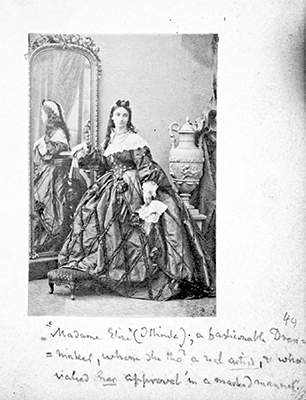 49
"Madame Eliza (Ithinda); a fashionable Dress =
= maker, whom she tho't a real artist, & who
valued her approval in a marked manner.